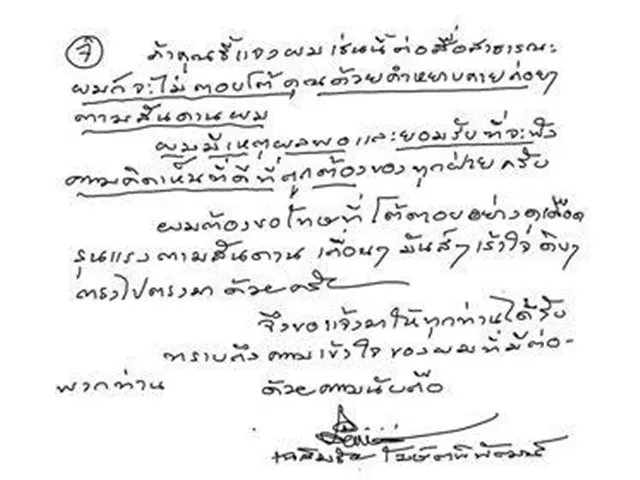 ๆ ถ้าคุณชี้แจงผมเช่นนี้ต่อสื่อสาธารณะ
ผมก็จะไม่ตอบโต้คุณด้วยคำหยาบคายค่อยๆ
ตามสันดานผม
ผมมีเหตุผลพอและยอมรับที่จะฟัง
ความคิดเห็นที่ดีที่ถูกต้องของทุกฝ่ายครับ
ผมต้องขอโทษที่โต้ตอบอย่างดุเดือด
รุนแรงตามสันดานเถื่อนๆ มันส์ๆ เร้าใจ ดิบๆ
ตรงไปตรงมาด้วยครับ
จึงขอแจ้งมาให้ทุกท่านได้รับ
ทราบถึงความเข้าใจของผมที่มีต่อ-
พวกท่าน ด้วยความนับถือ
เฉลิมชัย โฆษิตพิพัฒน์